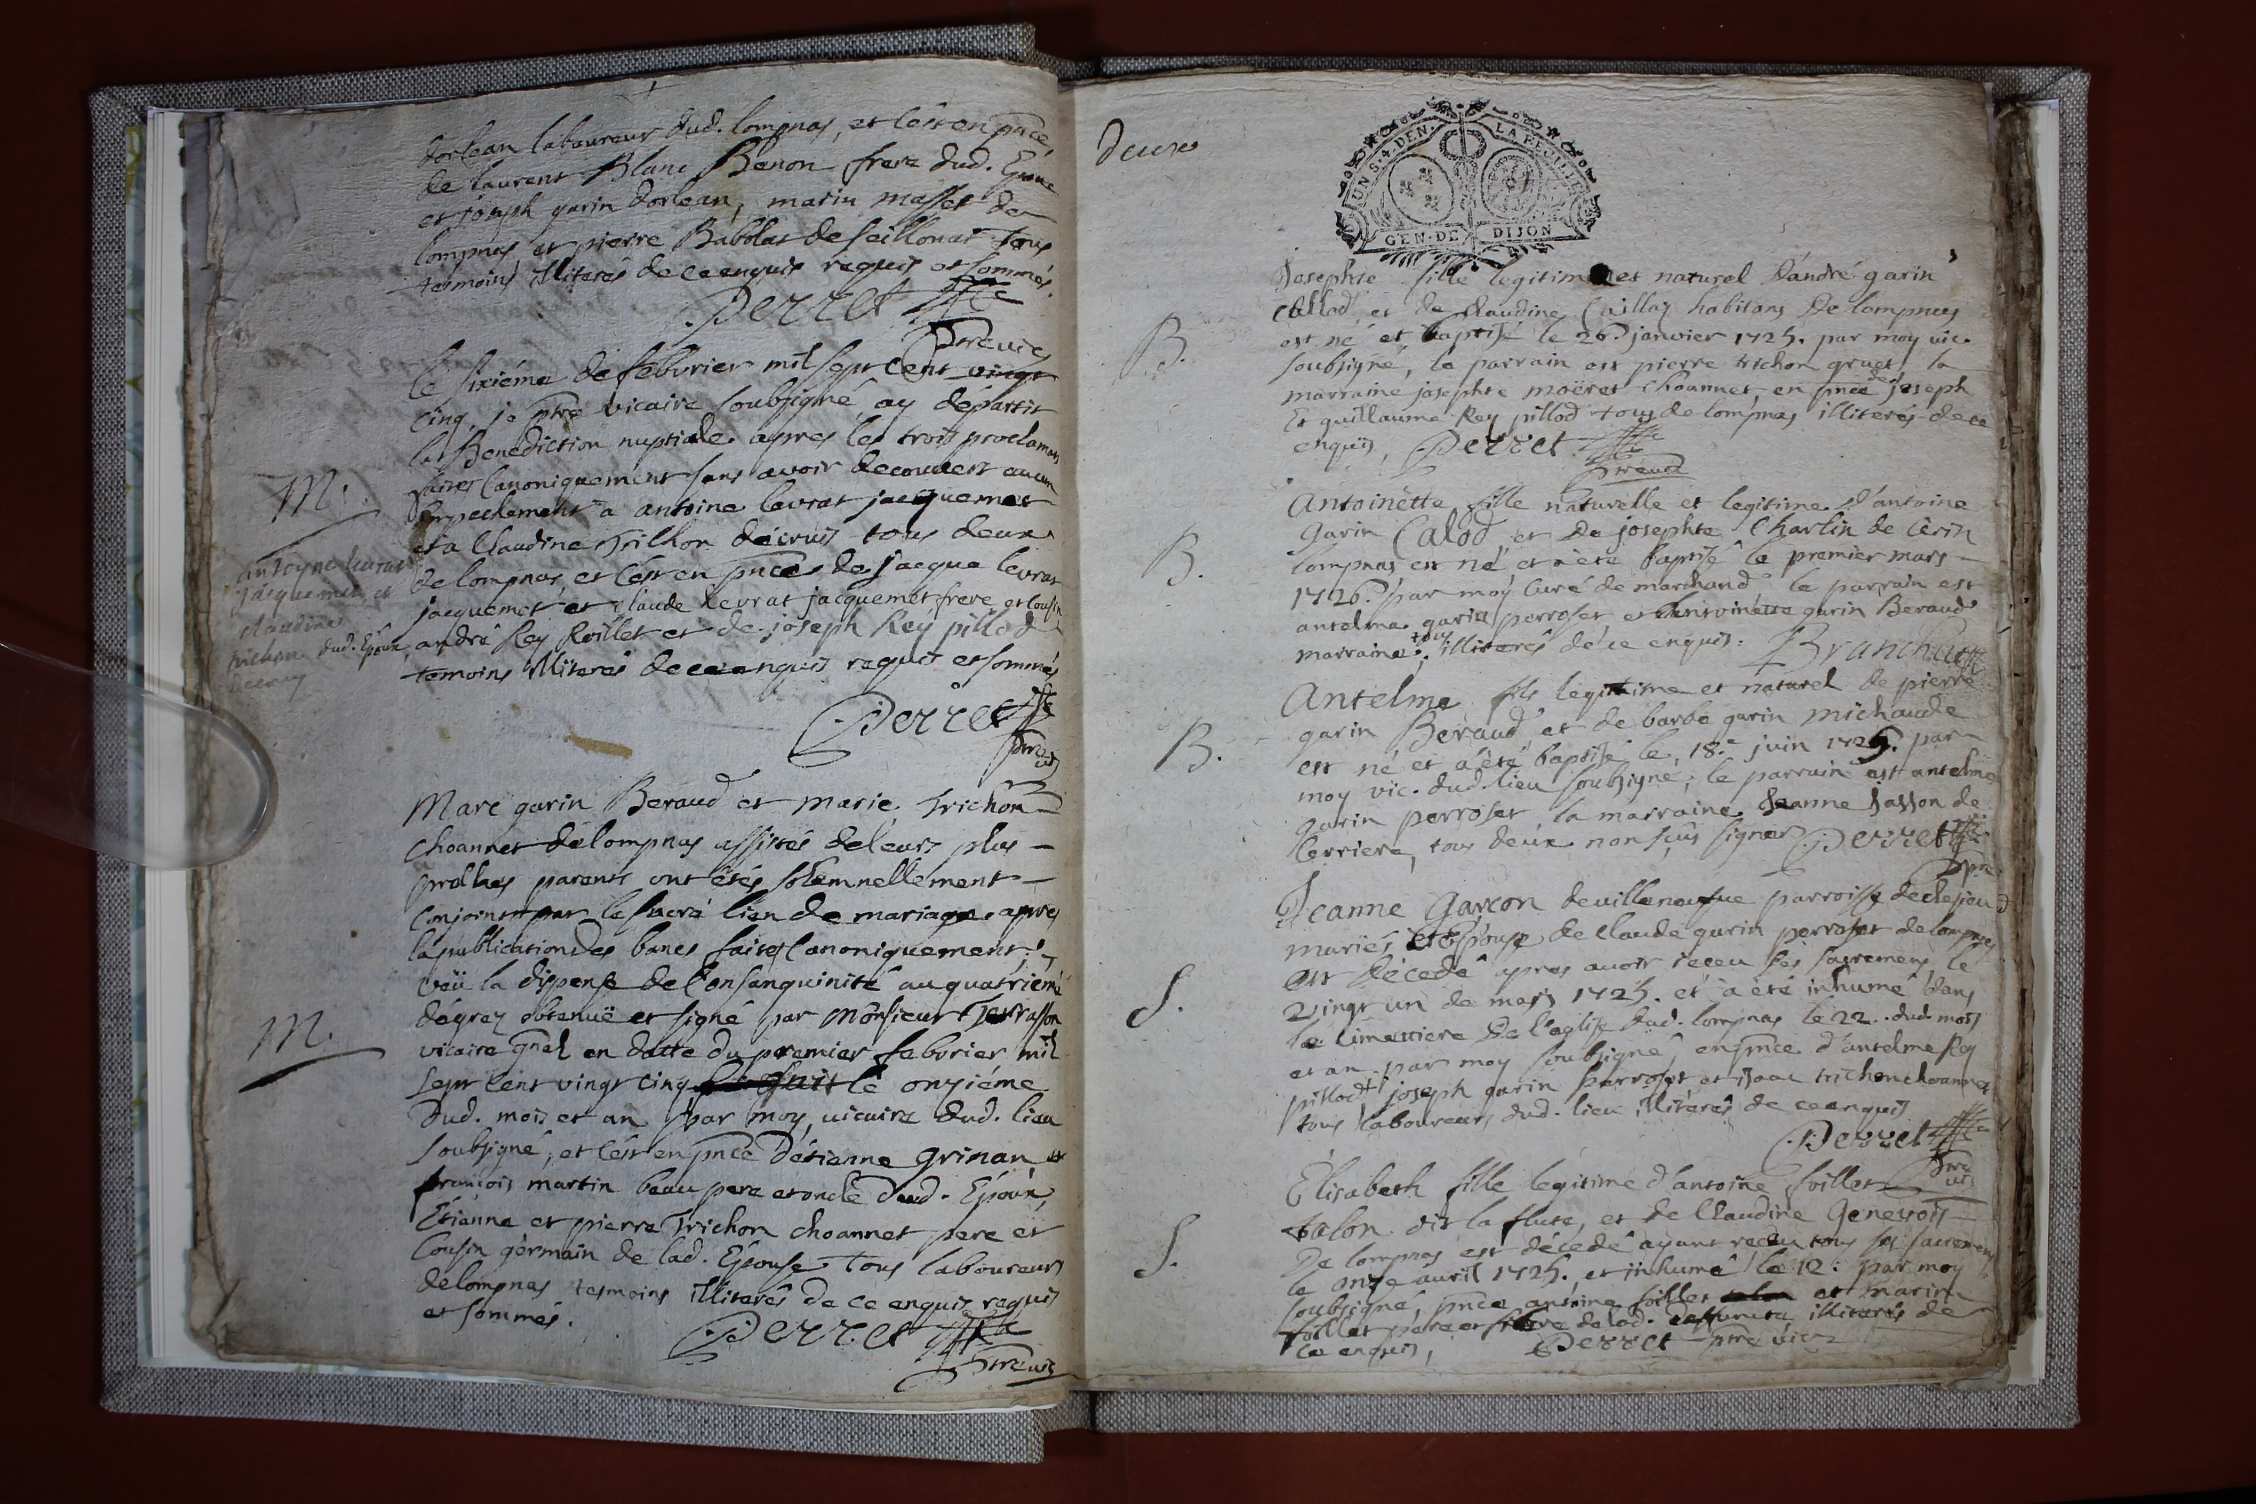 dorlean laboureur dud. lompnas, et c'est en pnce
de laurent Blanc Benon frere dud. Epoux
et joseph garin dorlean, marin masset de
lompnas et pierre Babolat de seillonas tous
tesmoins illiterés de ce enquis requis et sommés.
Perret
Ptre vic
le sixiéme de febvrier mil sept cent vingt
cinq, je ptre vicaire soubsigné ay départit
la Benediction nuptiale apres les trois proclamaõns
faites Canoniquement sans avoir decouvert aucun
Empechement a antoine levrat jacquemet
et a Claudine Trichon decruis tous deux
de lompnas, et c'est en pnce de jacque levrat
jacquemet et claude levrat jacquemet frere et cousin
dud. Epoux, andré Rey Roillet et de joseph Rey pillod
temoins illiterés de ce enquis requis et sommés
M.
antoyne levrat
jacquemet et
claudine
trichon
decruy
Perret
ptre vic
Marc garin Beraud et marie Trichon
choannet de lompnas assistés de leurs plus
proches parents ont étés solemnellement
conjoints par le sacré lien de mariage apres
la publication des bancs faites Canoniquement;
veü la dispense de Consanguinité au quatriéme
dégrez obtenuë et signé par Monsieur Terrasson
vicaire gnal en datte du premier febvrier mil
sept cent vingt cinq le onziéme
dud. mois et an par moy vicaire dud. lieu
soubsigné, et c'est en pnce d'étienne Grinan et
francois martin beau pere et oncle dud. Epoux,
Etienne et pierre Trichon choannet pere et
Cousin germain de lad. Epouse tous laboureurs
de lompnas tesmoins illiterés de ce enquis requis
et sommés.
M.
Perret
Ptre vic
deux
UN S. 4. DEN. LA FEUILLE
GEN. DE DIJON
Josephte fille legitime et naturel d'andré garin
Callod et de Claudine Caillag habitans de lompnas
est né et baptisé le 26e janvier 1725. par moy vic.
soubsigné, le parrain est pierre trichon gruet la
marraine josephte moëret choannet, en pnce de joseph
Et guillaume Rey pillod tous de lompnas illiterés de ce
enquis, Perret
Ptre vic
B.
Antoinette fille naturelle et legitime d'antoine
garin Calod et de josephte Charlin de Cerin
lompnas est né et a été baptisé le premier mars
1726. par moy Curé de marchand le parrain est
antelme garin perroset et Antoinette garin Beraud
marraine, tous illiterés de ce enquis. Branche
B.
Antelme fils legitime et naturel de pierre
garin Beraud et de barbe garin michaude
est né et a été baptisé le 18e juin 1725. par
moy vic. dud. lieu soubsigné; le parrain est antelme
garin perroset la marraine Jeanne Jasson de
Cerriere, tous deux non sçus signer Perret
ptre
B.
Jeanne Garcon de villeneufve parroisse de
mariés et Epouse de Claude garin perroset de lompnas
est décedé apres avoir receu ses sacremens le
vingt un de mars 1725. et a été inhumé dans
le cimettiere de l'eglise dud. lompnas le 22. dud. mois
et an par moy soubsigné, en pnce d'antelme Rey
pillod joseph garin perroset et isaac trichon choannet
tous laboureurs dud. lieu illiterés de ce enquis
S.
Perret
Ptre vic
Elisabeth fille legitime d'antoine soillet
talon dit la flute, et de Claudine Genevois
De lompnas est décedé ayant receu tous ses sacremens
le onze avril 1725. et inhumé le 12. par moy
soubsigné, pnce antoine soillet et marin
soillet pere et frere de lad. deffuncte illiterés de
ce enquis, Perret ptre vic
S.